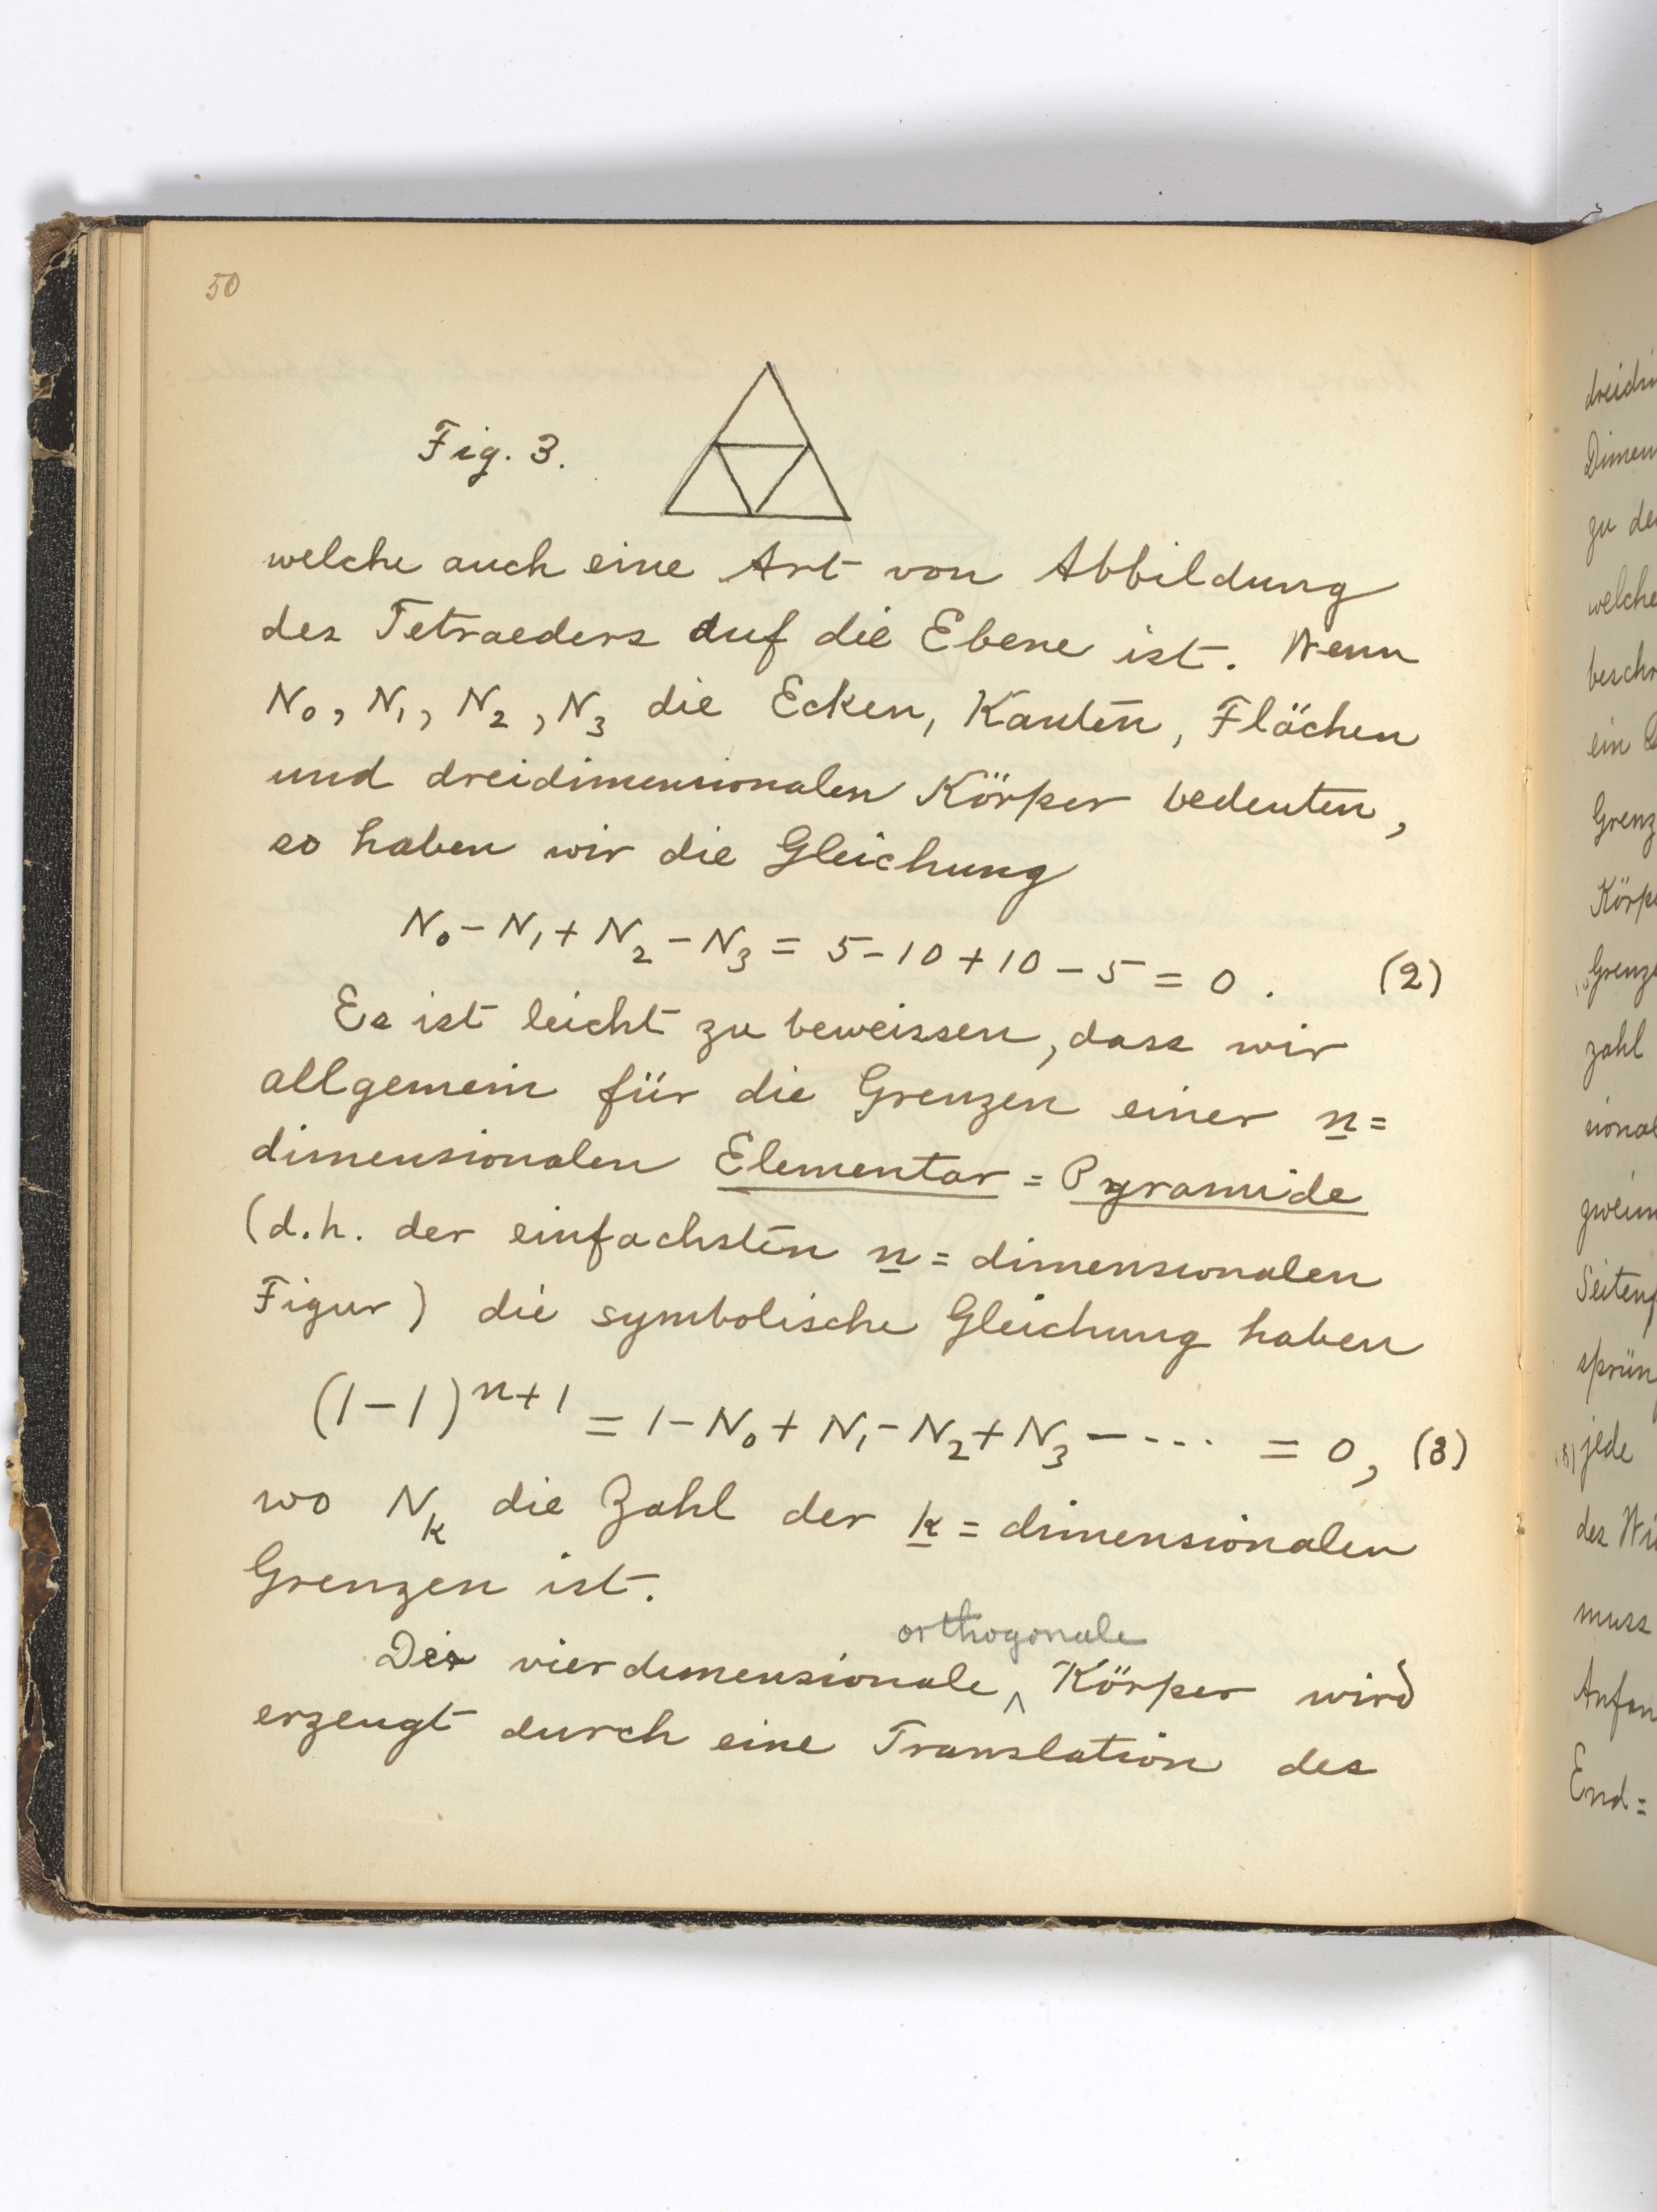 50
Fig. 3.
welche auch eine Art von Abbildung
des Tetraeders auf die Ebene ist. Wenn
N₀, N₁, N₂, N₃ die Ecken, Kanten, Flächen
und dreidimensionalen Körper bedeuten,
so haben wir die Gleichung
N₀ - N₁ + N₂ - N₃ = 5 - 10 + 10 - 5 = 0. (2)
Es ist leicht zu beweissen, dass wir
allgemein für die Grenzen einer n=
dimensionalen Elementar=Pyramide
(d.h. der einfachsten n=dimensionalen
Figur) die symbolische Gleichung haben
(1-1)ⁿ⁺¹ = 1 - N₀ + N₁ - N₂ + N₃ - .... = 0, (3)
wo Nₖ die Zahl der k=dimensionalen
Grenzen ist.
orthogonale
Der vierdimensionale ^ Körper wird
erzeugt durch eine Translation des
Dimen
zu de
welche
ein
Grenz
Körpe
Grenze
zahl
sional
zweim
Seiten
sprün
jede
des Wi
muss
Anfan
End=